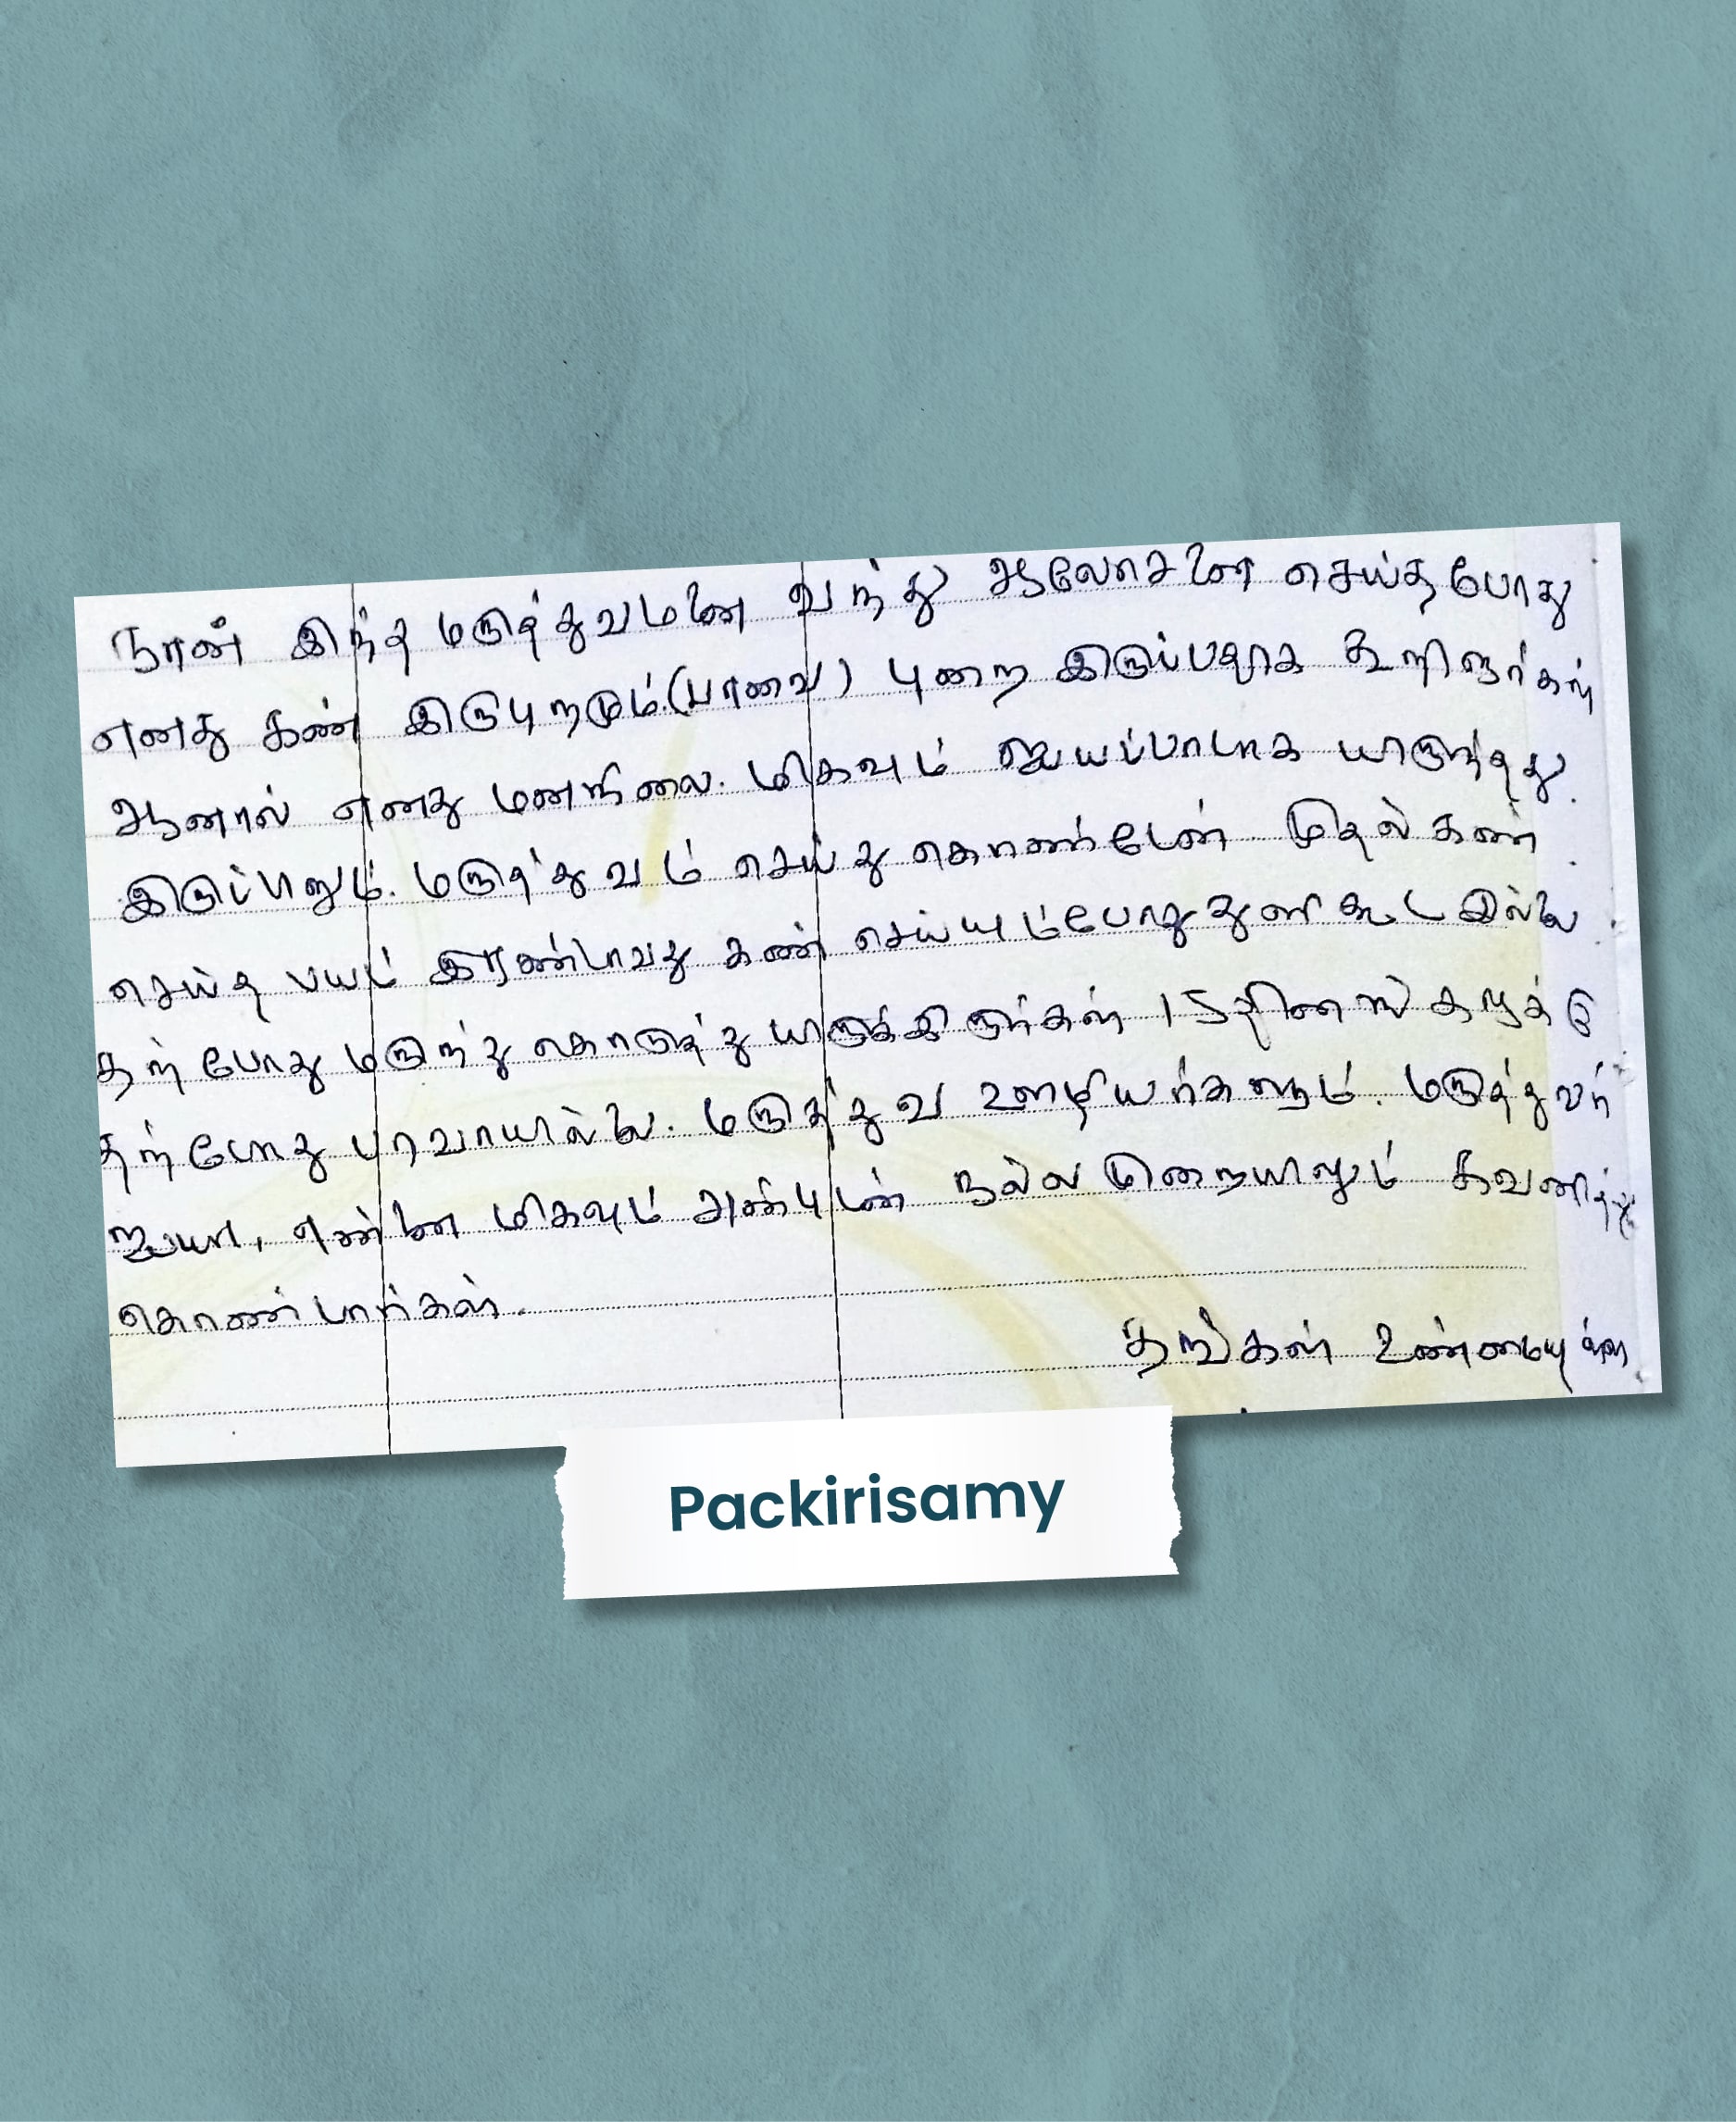 நான் இந்த மருத்துவமனை வந்து ஆலோசனை செய்தபோது
எனது கண் இருபுறமும்.(பானவ) புறை இருப்பதாக கூறினார்கள்
ஆனால் எனது மனநிலை. மிகவும் பயப்பாடாக யிருந்தது.
இருப்பினும். மருத்துவம் செய்து கொண்டேன் முதல் கண்
செய்த பயம் இரண்டாவது கண் செய்யும்போது துளி கூட இல்லை.
தற்போது மருந்து கொடுத்து யிருக்கிறார்கள் 15 தினங்களுக்கு
தற்போது பரவாயில்லை. மருத்துவ ஊழியர்களும். மருத்துவர்
ஐயா, என்னை மிகவும் அன்புடன் நல்ல முறையிலும் கவனித்து
கொண்டார்கள்.
தங்கள் உண்மையுள்ள
Packirisamy